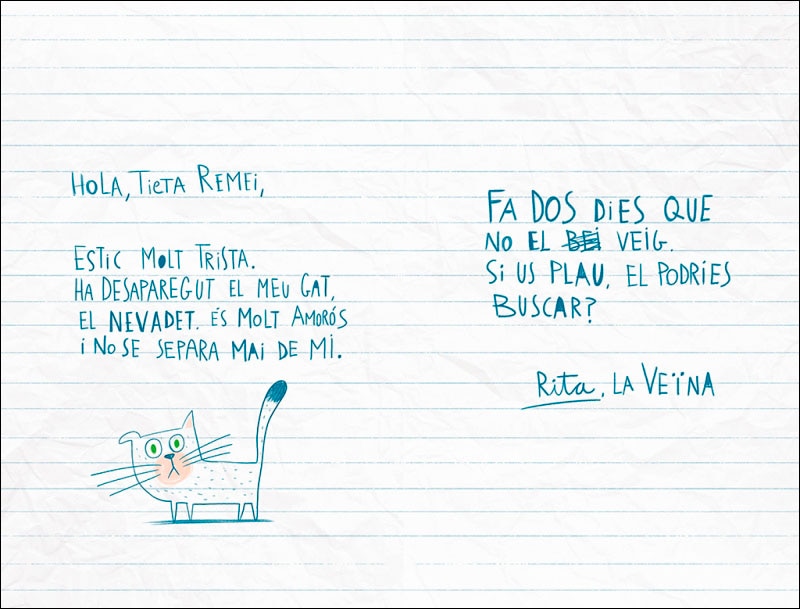 HOLA, TIETA REMEI,
ESTIC MOLT TRISTA.
HA DESAPAREGUT EL MEU GAT,
EL NEVADET. ÉS MOLT AMORÓS
I NO SE SEPARA MAI DE MI.
FA DOS DIES QUE
NO EL BEI VEIG.
SI US PLAU, EL PODRIES
BUSCAR?
Rita, LA VEÏNA